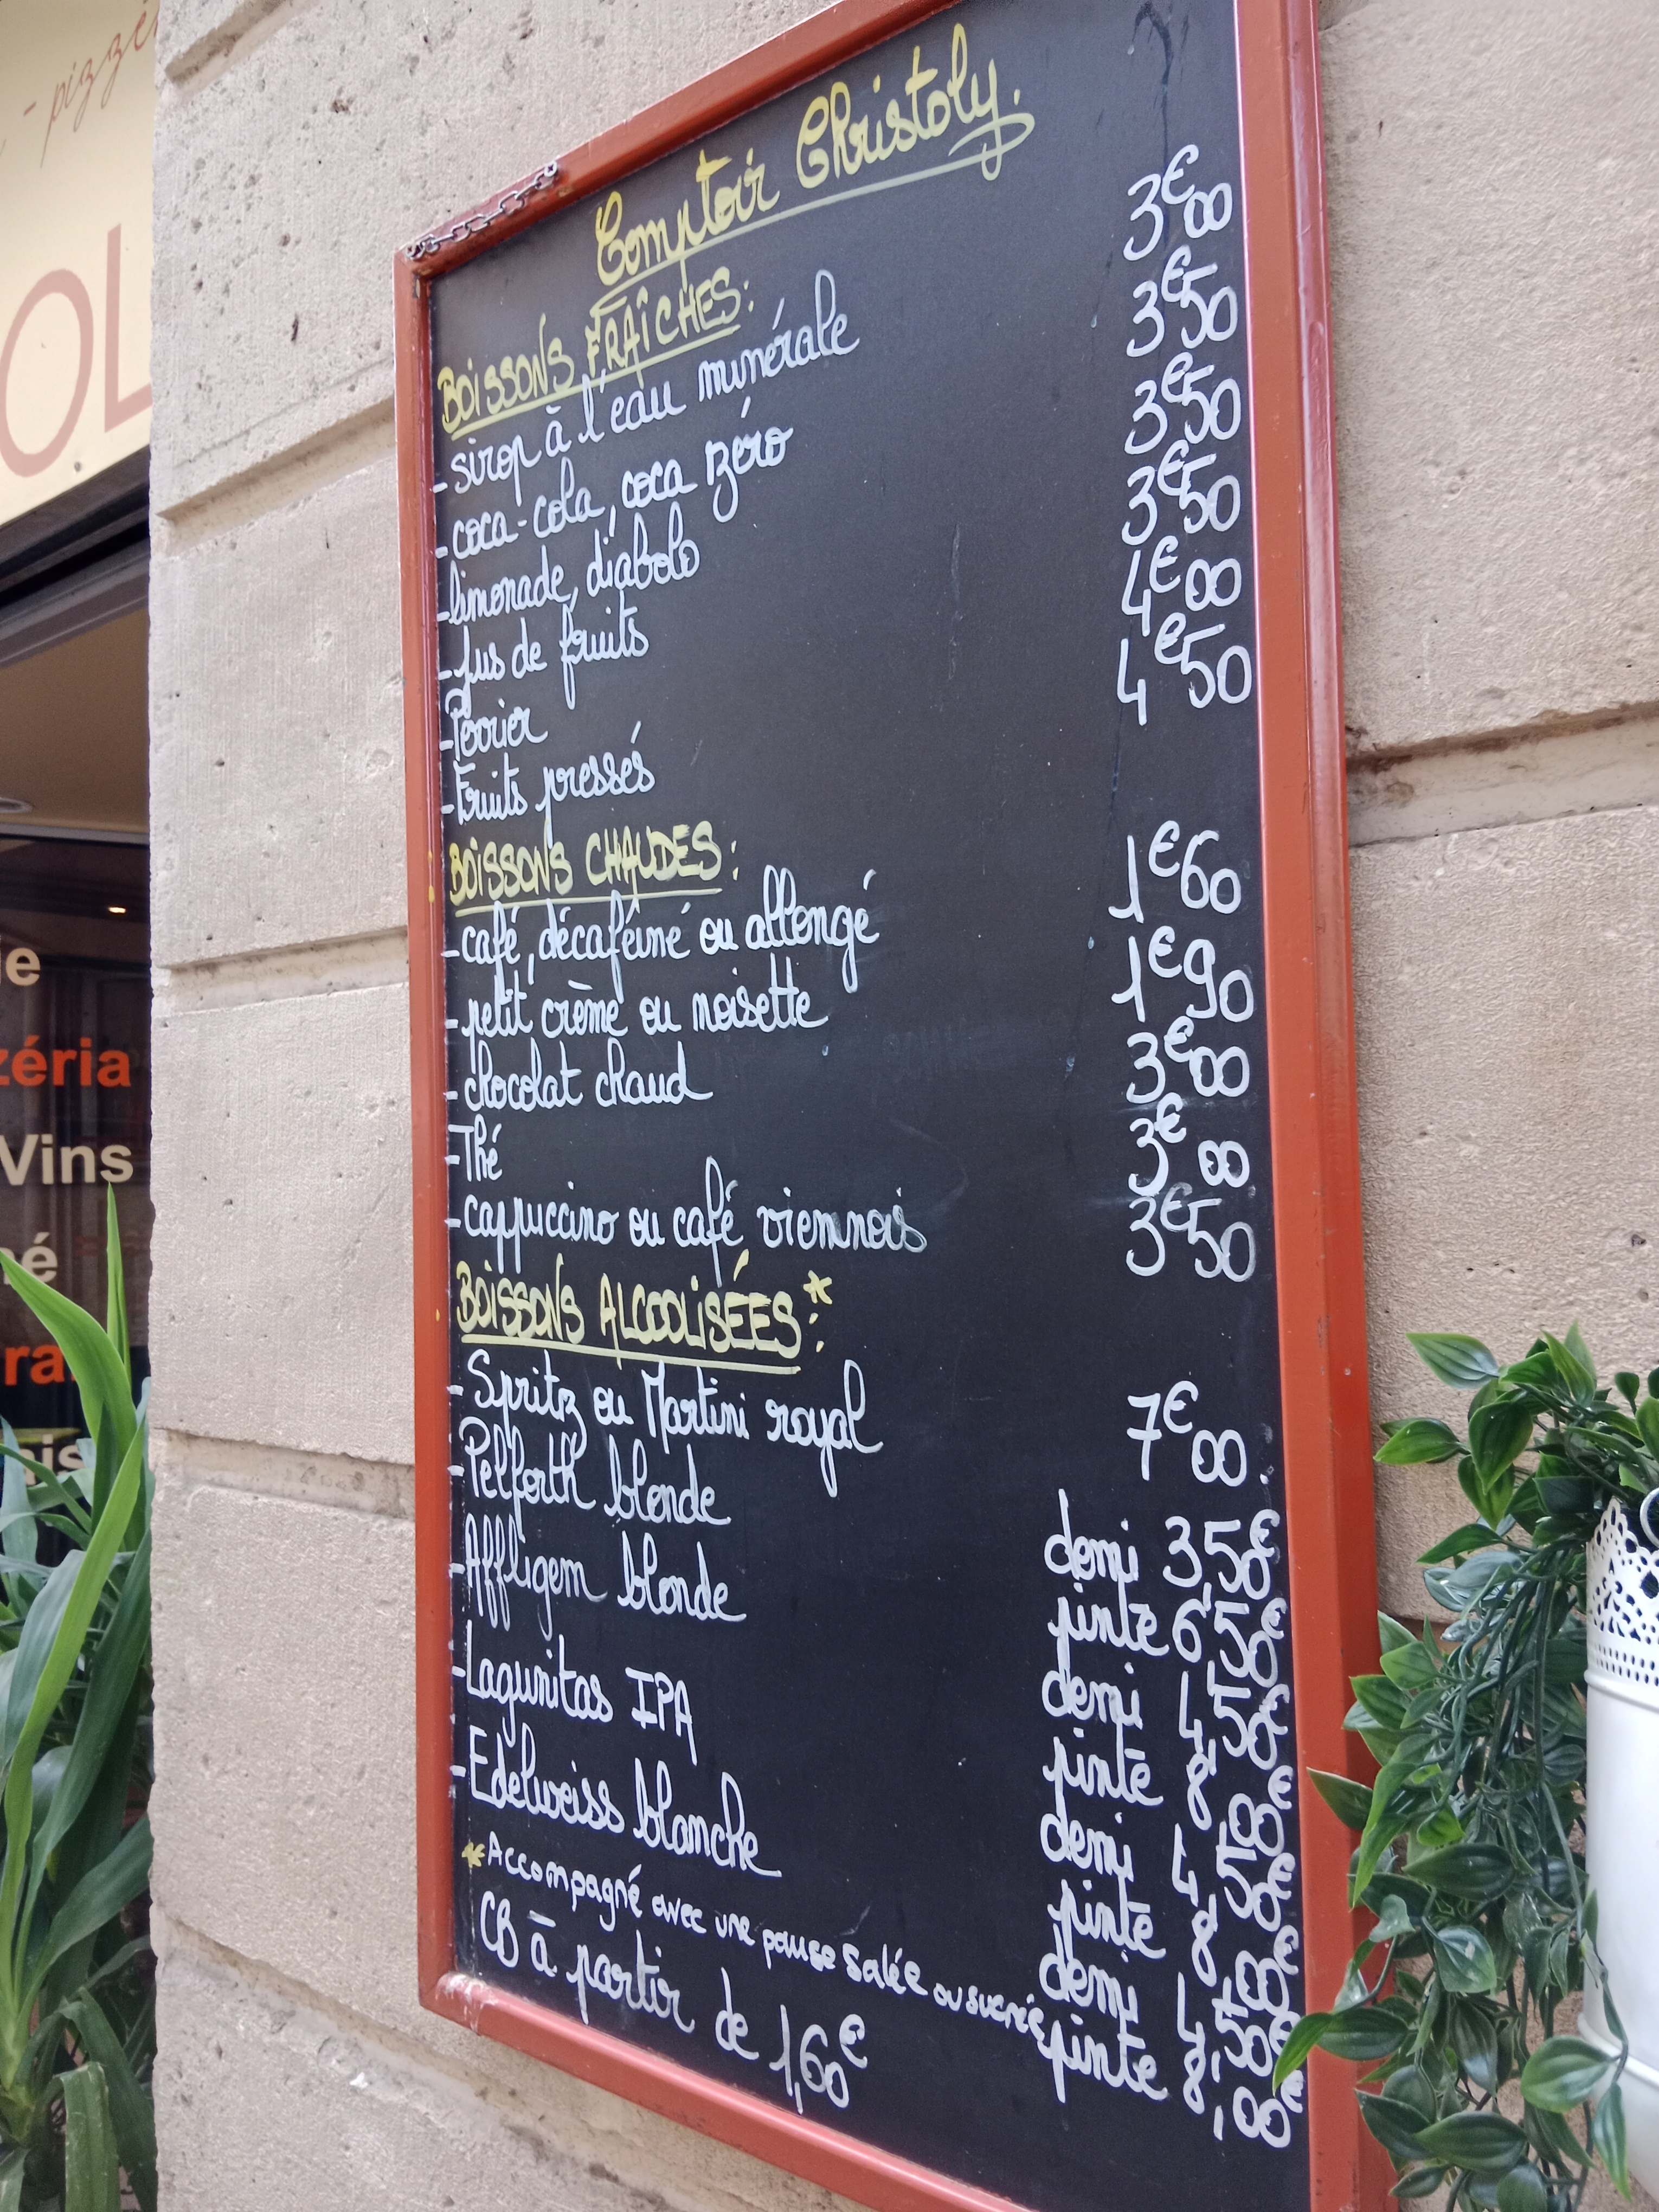 - pizzé
OL
Comptoir Christoly.
BOISSONS FRAÎCHES:
- sirop à l'eau minérale 3€00
- coca-cola, coca zéro 3€50
- limonade, diabolo 3€50
- jus de fruits 3€50
- Perrier 4€00
- Fruits pressés 4€50
BOISSONS CHAUDES:
- café, décaféiné ou allongé 1€60
- petit crème ou noisette 1€90
- chocolat chaud 3€00
- Thé 3€00
- cappuccino ou café viennois 3€50
BOISSONS ALCOOLISÉES*:
- Spritz ou Martini royal 7€00.
- Pelforth blonde demi 3,50€
pinte 6,50€
- Affligem blonde demi 4,50€
pinte 8,00€
- Lagunitas IPA demi 4,50€
pinte 8,00€
- Edelweiss blanche demi 4,50€
pinte 8,00€
*Accompagné avec une pause salée ou sucrée
CB à partir de 1,60€
zéria
Vins